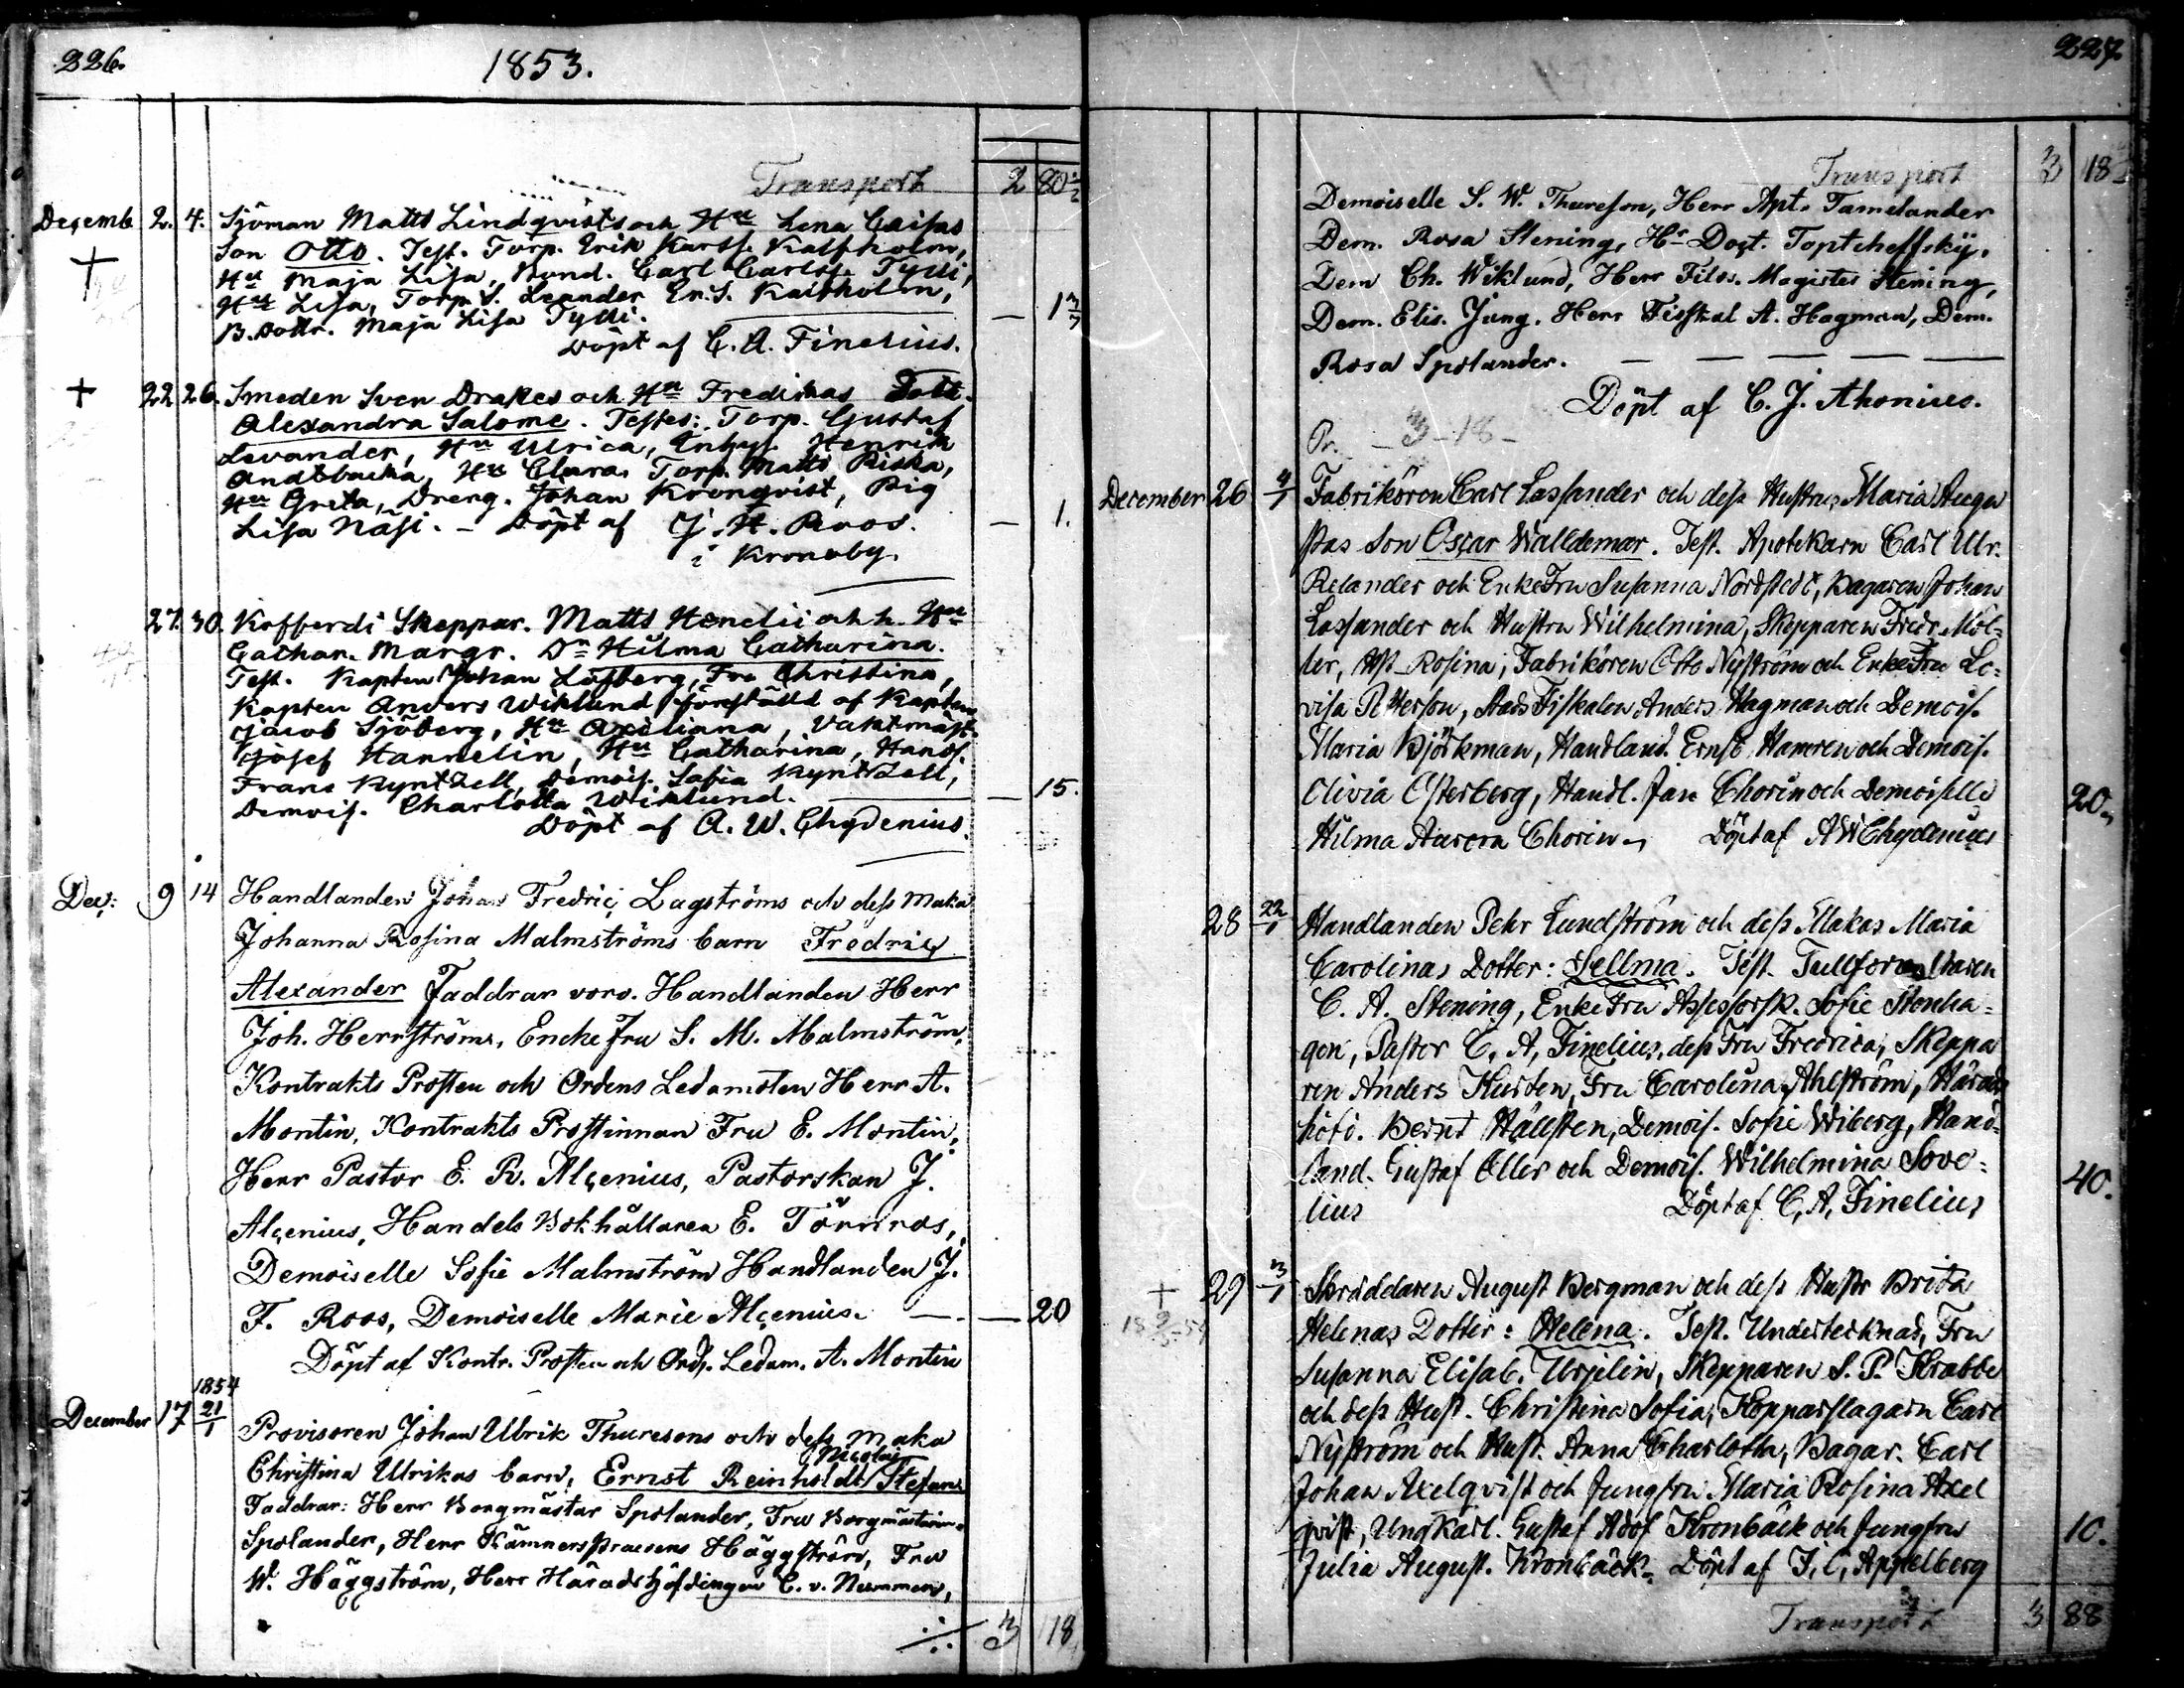 226.
1853.
Transport 2 80 1/2
Decemb. 2. 4. Sjöman Matts Lindqvists och Hu Lena Caisas
Son Otto. Test. Torp. Erik Karlss. Kalfholm,
Hu Maja Lisa, Bond. Carl Carlss. Tylli,
Hu Lisa, Torp. S. Leander Er.S. Kalfholm,
B.dottr. Maja Lisa Tylli. — 1
Döpt af C. A. Finelius.
+ 22 26. Smeden Sven Drakes och Hu Fredikas Dottr.
Alexandra Salome. Testes: Torp. Gustaf
Levander, Hu Ulrica, Inhys. Henrik
Andtbacka, Hu Clara, Torp. Matts Riska,
Hu Greta, Dreng. Johan Kronqvist, Pig
Lisa Näsi. — Döpt af J. H. Roos. — 1.
i Kronoby.
27. 30. Kofferdi Skeppar. Matts Henelii och h. Hu
Cathar. Margr. Dr Hilma Catharina.
Test. Kapten Johan Löfberg, Fru Christina,
Kapten Anders Wiklund föreställd af Kapten
Jacob Sjöberg, Hu Axeliana, Vaktmäst.
Josef Hannelin, Hu Catharina, Handl.
Frans Kyntzell, Demois. Sofia Kyntzell,
Demois. Charlotta Wiklund. — 15.
Döpt af A. W. Chydenius.
Dec: 9 14 Handlanden Johan Fredric Lagströms och dess Maka
Johanna Rosina Malmströms barn Fredric
Alexander Faddrar voro. Handlanden Herr
Joh. Herrströms, Encke Fru S. M. Malmström,
Kontrakts Prosten och Ordens Ledamoten Herr A.
Montin, Kontrakts Prostinnan Fru E. Montin,
Herr Pastor E. R. Alcenius, Pastorskan J.
Alcenius, Handels Bokhållaren E. Törnroos,
Demoiselle Sofie Malmström Handlanden J.
F. Roos, Demoiselle Marie Alcenius. — 20
Döpt af Kontr. Prosten och Ords. Ledam. A. Montin
1854
December 17 21/1 Provisoren Johan Ulrik Thuresons och dess Maka
Nicolai
Christina Ulrikas barn, Ernst Reinholdt Stefan
Faddrar: Herr Borgmästar Spolander, Fru Borgmästarin
Spolander, Herr Kämnerspraesens Häggström, Fru
W. Häggström, Herr Häradshöfdingen C. v. Nummen,
3 18
227.
Transport 3 18
Demoiselle S. W. Thureson, Herr Apt. Tamelander
Dem. Rosa Stening, Hr Doct. Toptcheffsky,
Dem Ch. Wiklund, Herr Filos. Magister Stening,
Dem. Elis. Jung. Herr Fisskal A. Hagman, Dem.
Rosa Spolander.
Döpt af C. J. Ahonius.
Pr. — 3 - 18 -
December 26 4/1 Fabrikören Carl Lassander och dess Hustrus Maria Augu
stas Son Oscar Walldemar. Test. Apotekarn Carl Ulr.
Relander och EnkeFru Susanna Nordstedt, Bagaren Johan
Lassander och Hustru Wilhelmina, Skepparen Fredr. Möl=
ler, Hst Rosina, Fabrikören Otto Nyström och EnkeFru Lo=
visa Petterson, StadsFiskalen Anders Hagman och Demois.
Maria Björkman, Handland. Ernst Hamren och Demois.
Olivia Österberg, Handl. Jan Chorin och Demoiselle
Hilma Aurora Chorin. Döpt af AWChydenius 20.
28 22/1 Handlanden Pehr Lundström och dess Makas Maria
Carolinas Dotter: Sellma. Test. Tullförvaltaren
C. A. Stening, Enke Fru Assessorsk. Sofie Stenha=
gen, Pastor C. A. Finelius, dess Fru Fredrica, Skeppa
ren Anders Kursten, Fru Carolina Ahlström, Härads
höfd. Bernt Hällsten, Demois. Sofie Wiberg, Hand=
land. Gustaf Öller och Demois. Wilhelmina Sove=
lius Döpt af C. A. Finelius 40.
+ 29 3/1 Skräddaren August Bergman och dess Hustr Brita
Helenas Dotter: Helena. Test. Undertecknad, Fru
Susanna Elisab. Ursjelin, Skepparen S. P. Krabbe
och dess Hust. Christina Sofia, Kopparslagarn Carl
Nyström och Hust. Anna Charlotta, Bagar. Carl
Johan Axelqvist och Jungfru Maria Rosina Axel
qvist, UngKarl. Gustaf Adof Kronbäck och Jungfru
Julia August. Kronbäck. Döpt af J. C. Appelberg 10.
Transport 3 88